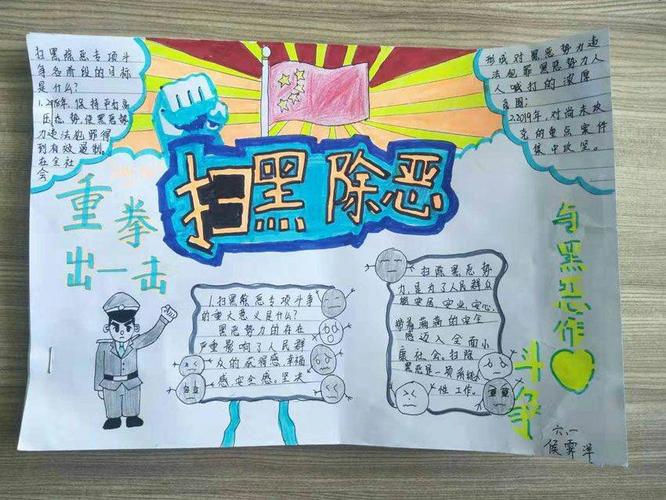 扫黑除恶专项斗
争各阶段的目标
是什么?
1.2018年,保持平打高
压态势,使黑恶势
力违法犯罪得
到有效遏制。
在全社
会
形成对黑恶势力违
法犯罪黑恶势力人
人喊打的浓厚
氛围。
2.2019年,对尚未攻
克的重点案件
集中攻坚。
扫黑除恶
重拳
出一击
与黑恶作
斗争
1.扫黑除恶专项斗争
的重大意义是什么?
黑恶势力的存在
严重影响了人民群
众的获得感,幸福
感,安全感。坚决
扫除黑恶势
力,是为了人民群众
能安居,安业,安心,
满满的安全
感迈入全面小
康社会。扫除
黑恶是一项
性工作。
六.一
侯霁洋